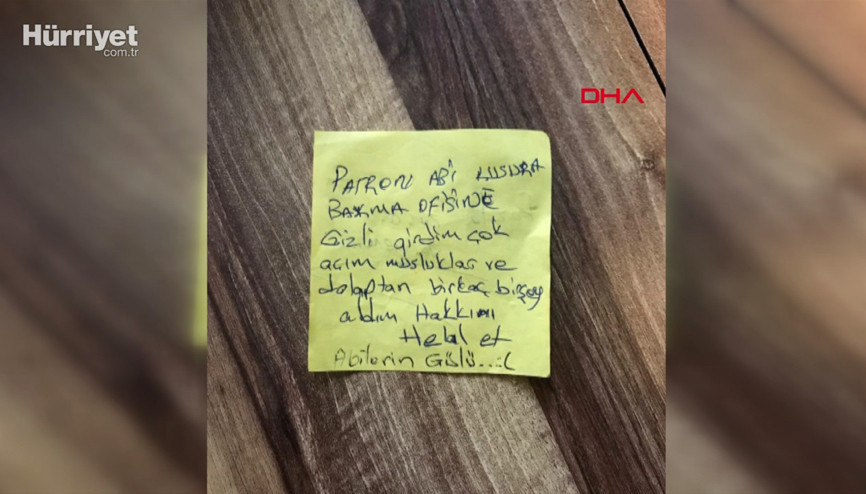 Hürriyet
com.tr
DHA
PATRON ABİ KUSURA
BAKMA OFİSİNE
Gizli girdim çok
açım musluklar ve
dolaptan birkaç birşey
aldım Hakkını
Helal et
Abilerin Gülü...:(